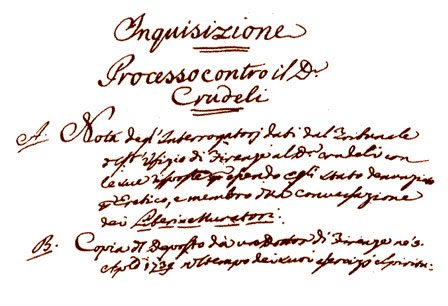 Inquisizione
Processo contro il Dr
Crudeli
A. Nota degl'Interrogatorj dati dal Tribunale
del St Ufizio di Firenze al Dr Crudeli con
le sue risposte essendo egli stato denunziato
Eretico, e membro d'una conversazione
dei Liberi Muratori.
B. Copia di Deposto da un Dottor di Firenze
1739 nel tempo dei suoi esercizi Spiritu-